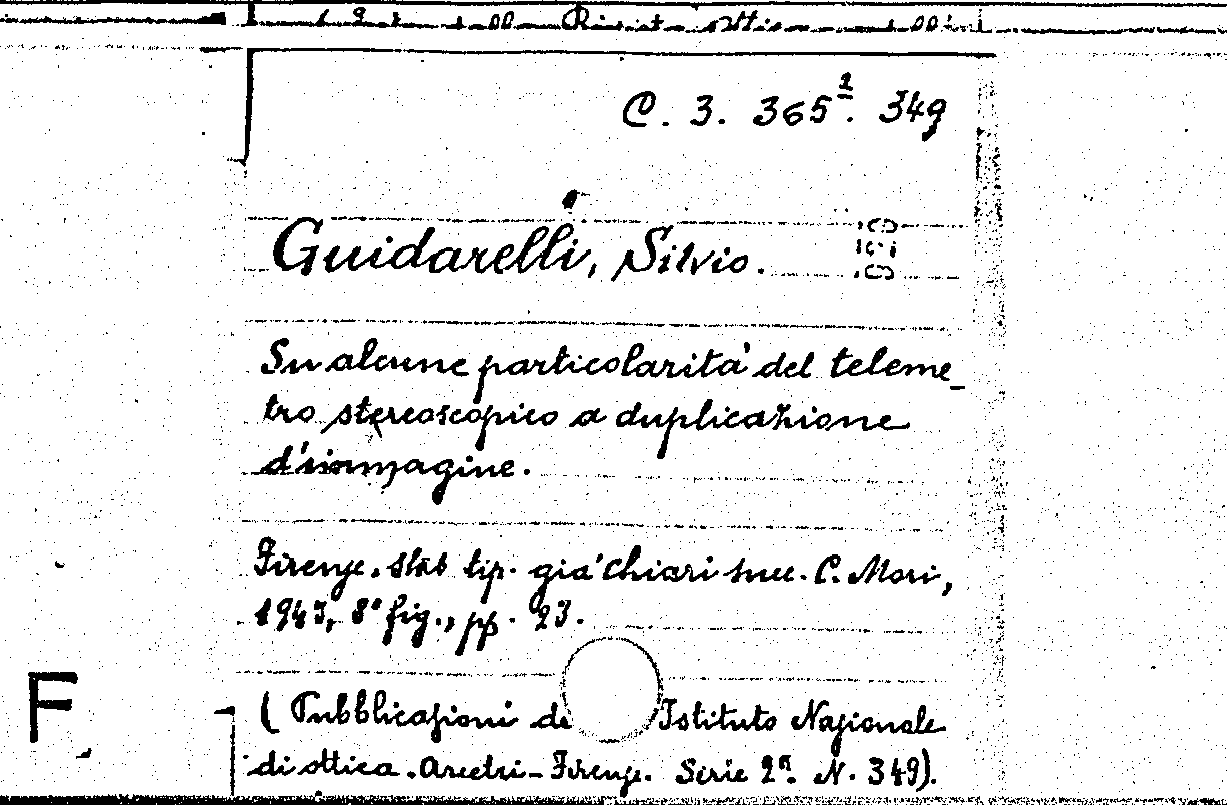 Rivista ottica
C. 3. 365². 349
Guidarelli, Silvio.
Su alcune particolarità del teleme_
tro stereoscopico a duplicazione
d'immagine.
Firenze. Stab tip. già Chiari succ. C. Mori,
1943, 8° fig., pp. 23.
F
( Pubblicazioni de Istituto Nazionale
di ottica. Arcetri - Firenze. Serie 2ª. N. 349).